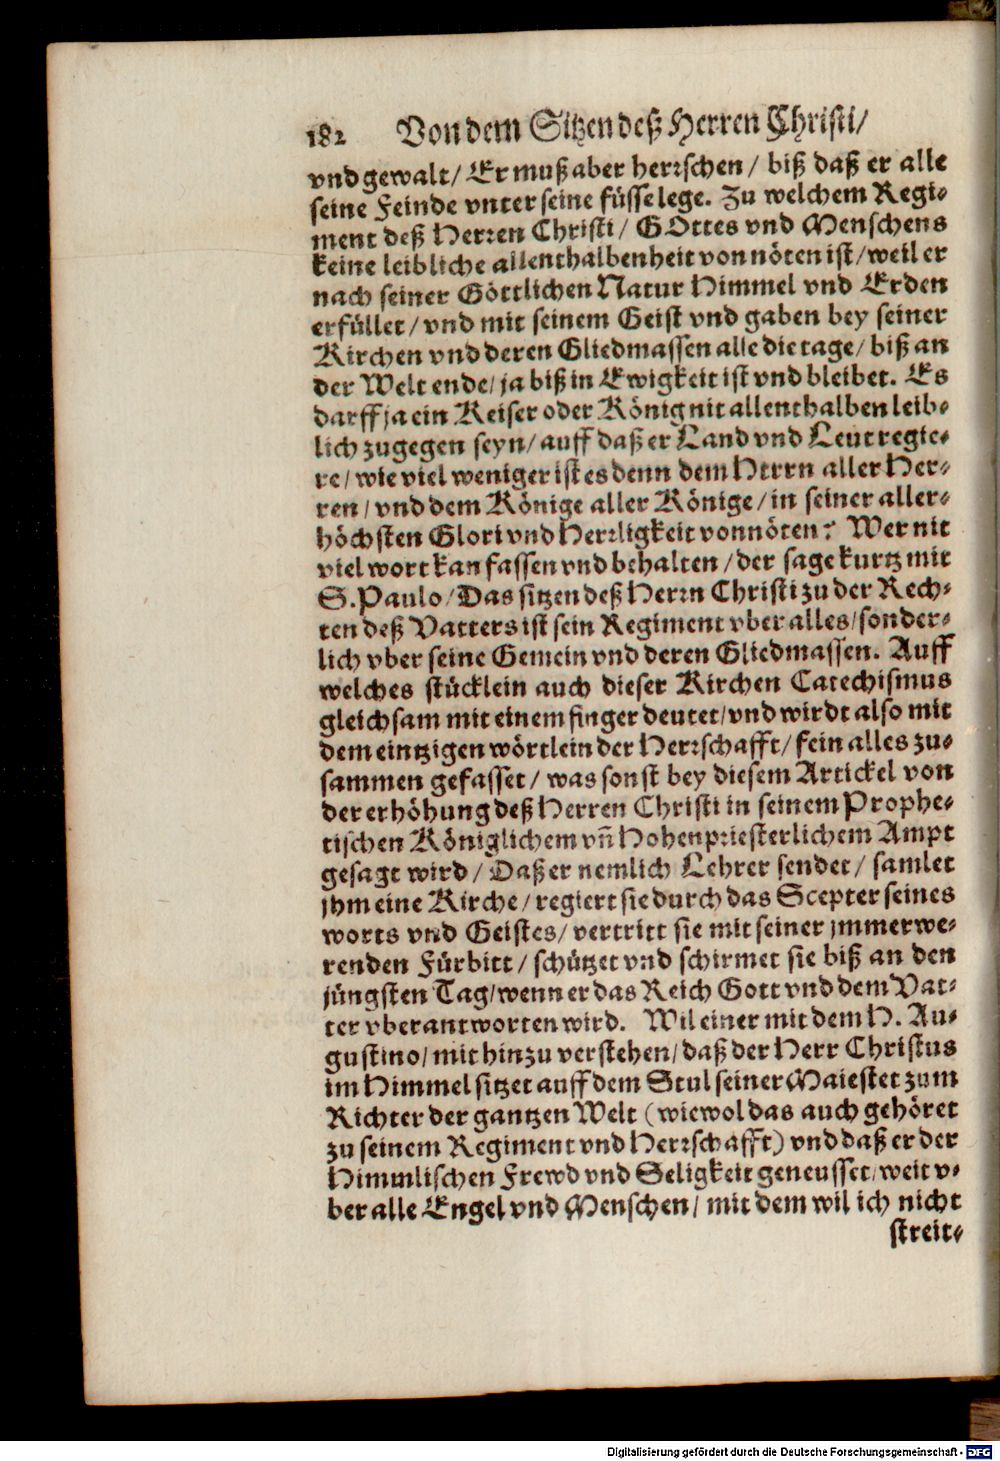 182 Von dem Sitzen deß Herren Christi/
vnd gewalt/ Er muß aber herrschen/ biß daß er alle
seine Feinde vnter seine füsse lege. Zu welchem Regi-
ment deß Herren Christi/ GOttes vnd Menschens
keine leibliche allenthalbenheit von nöten ist/ weil er
nach seiner Göttlichen Natur Himmel vnd Erden
erfüllet/ vnd mit seinem Geist vnd gaben bey seiner
Kirchen vnd deren Gliedmassen alle die tage/ biß an
der Welt ende/ ja biß in Ewigkeit ist vnd bleibet. Es
darff ja ein Keiser oder König nit allenthalben leib-
lich zugegen seyn/ auff daß er Land vnd Leut regie-
re/ wie viel weniger ist es denn dem Herrn aller Her-
ren/ vnd dem Könige aller Könige/ in seiner aller-
höchsten Glori vnd Herrligkeit vonnöten? Wer nit
viel wort kan fassen vnd behalten/ der sage kurtz mit
S. Paulo/ Das sitzen deß Herrn Christi zu der Rech-
ten deß Vatters ist sein Regiment vber alles/ sonder-
lich vber seine Gemein vnd deren Gliedmassen. Auff
welches stücklein auch dieser Kirchen Catechismus
gleichsam mit einem finger deutet/ vnd wirdt also mit
dem eintzigen wörtlein der Herrschafft/ fein alles zu-
sammen gefasset/ was sonst bey diesem Artickel von
der erhöhung deß Herren Christi in seinem Prophe-
tischen Königlichem vñ Hohenpriesterlichem Ampt
gesagt wird/ Daß er nemlich Lehrer sendet/ samlet
jhm eine Kirche/ regiert sie durch das Scepter seines
worts vnd Geistes/ vertritt sie mit seiner jmmerwe-
renden Fürbitt/ schützet vnd schirmet sie biß an den
jüngsten Tag/ wenn er das Reich Gott vnd dem Vat-
ter vberantworten wird. Wil einer mit dem H. Au-
gustino/ mit hinzu verstehen/ daß der Herr Christus
im Himmel sitzet auff dem Stul seiner Maiestet zum
Richter der gantzen Welt (wiewol das auch gehöret
zu seinem Regiment vnd Herrschafft) vnd daß er der
Himmlischen Frewd vnd Seligkeit geneusset/ weit v-
ber alle Engel vnd Menschen/ mit dem wil ich nicht
streit-
Digitalisierung gefördert durch die Deutsche Forschungsgemeinschaft - DFG